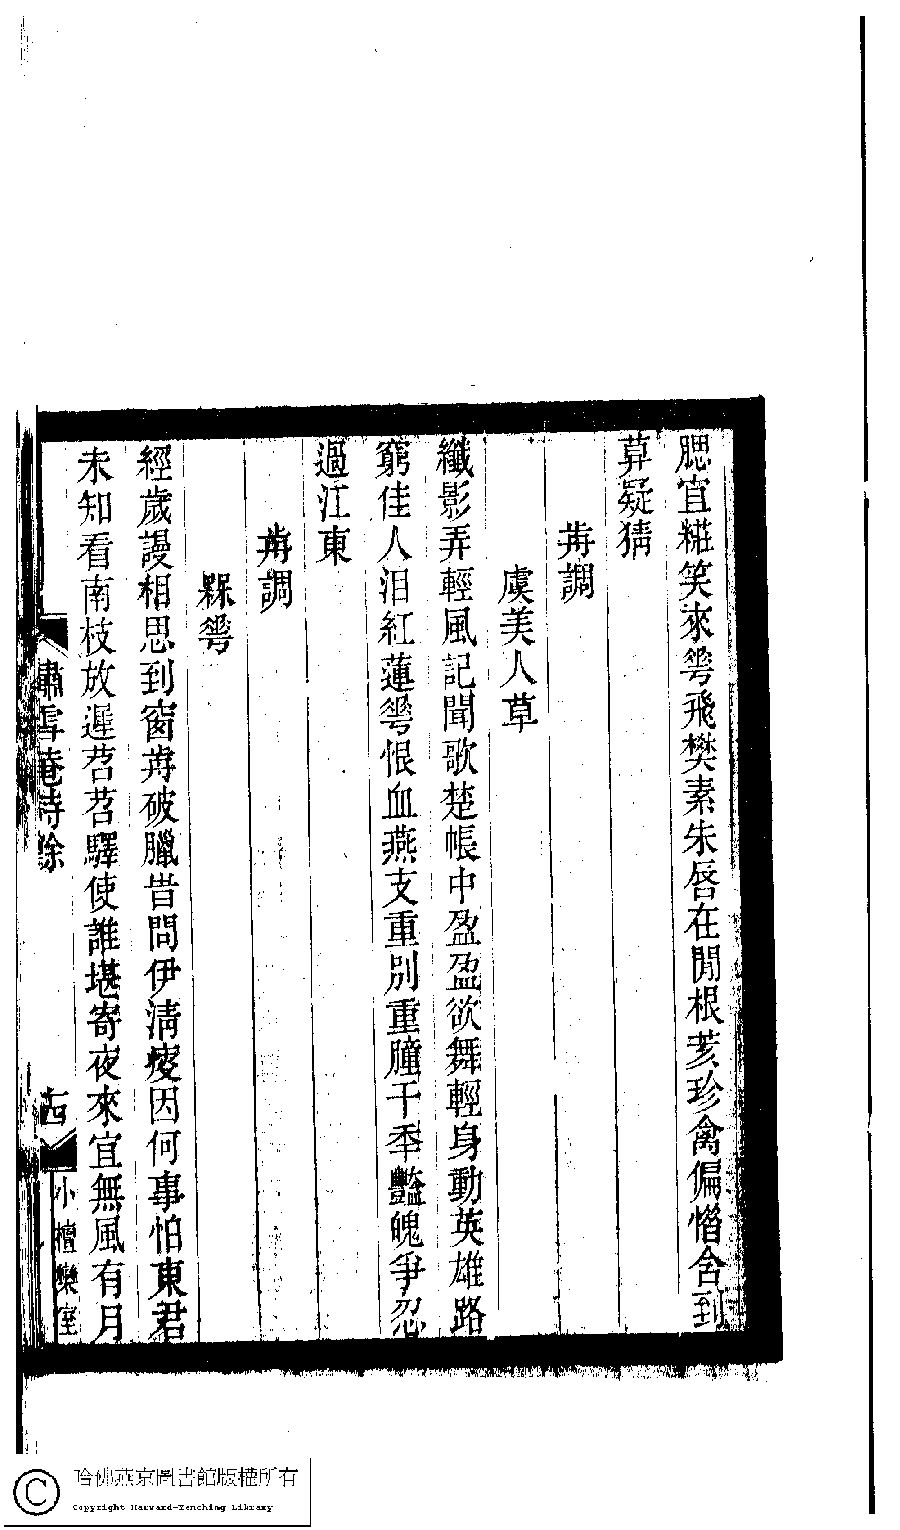 腮宜糚笑來蕚飛樊素朱唇在閒根荄珍禽偏惜含到
算疑猜
歬調
虞美人草
纖影弄輕風記聞歌楚帳中盈盈欲舞輕身動英雄路
窮佳人淚紅蓮蕚恨血燕支重別重瞳千秊豔魄爭忍
過江東
歬調
槑蕚
經歲謾相思到窗歬破臘昔問伊淸瘦因何事怕東君
未知看南枝放遲苕苕驛使誰堪寄夜來宜無風有月
繡雪菴詩餘
十四
小檀欒室
哈佛燕京圖書館版權所有
Copyright Harvard-Yenching Library